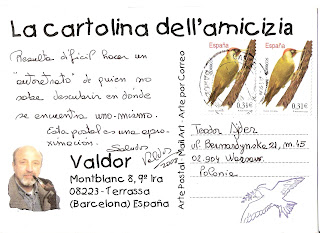 La cartolina dell'amicizia
Resulta difícil hacer un
"autoretrato" de quien no
sabe descubrir en donde
se encuentra uno-mismo.
Esta postal es una apro-
ximación.
Saludos
Valdor
Montblanc 8, 9º 1ra
08223-Terrassa
(Barcelona) España
Arte Postal - Mail Art - Arte por Correo
España
0,31€
España
0,31€
Teodor
ul. Bernardynska 21, m. 45
02.904 Warsaw
Polonia